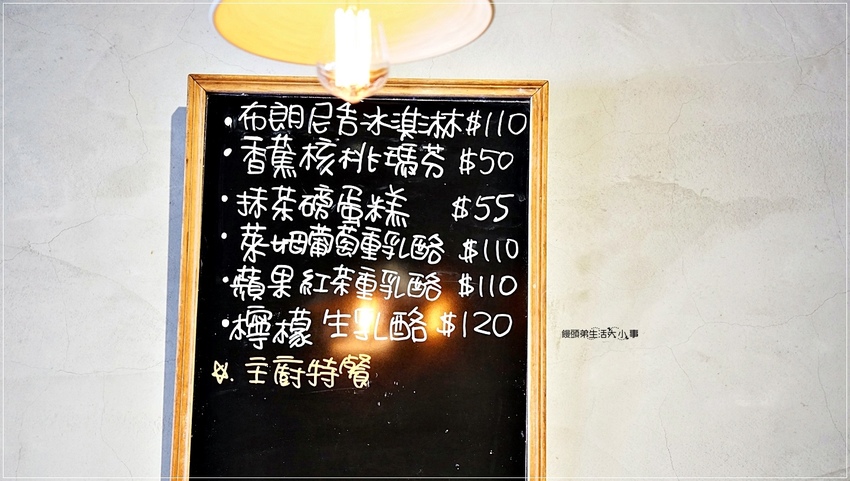 ・布朗尼香冰淇淋$110
・香蕉核桃瑪芬 $50
・抹茶磅蛋糕 $55
・萊姆葡萄重乳酪 $110
・蘋果紅茶重乳酪 $110
・檸檬生乳酪 $120
☆. 主廚特餐
饅頭弟生活大小事